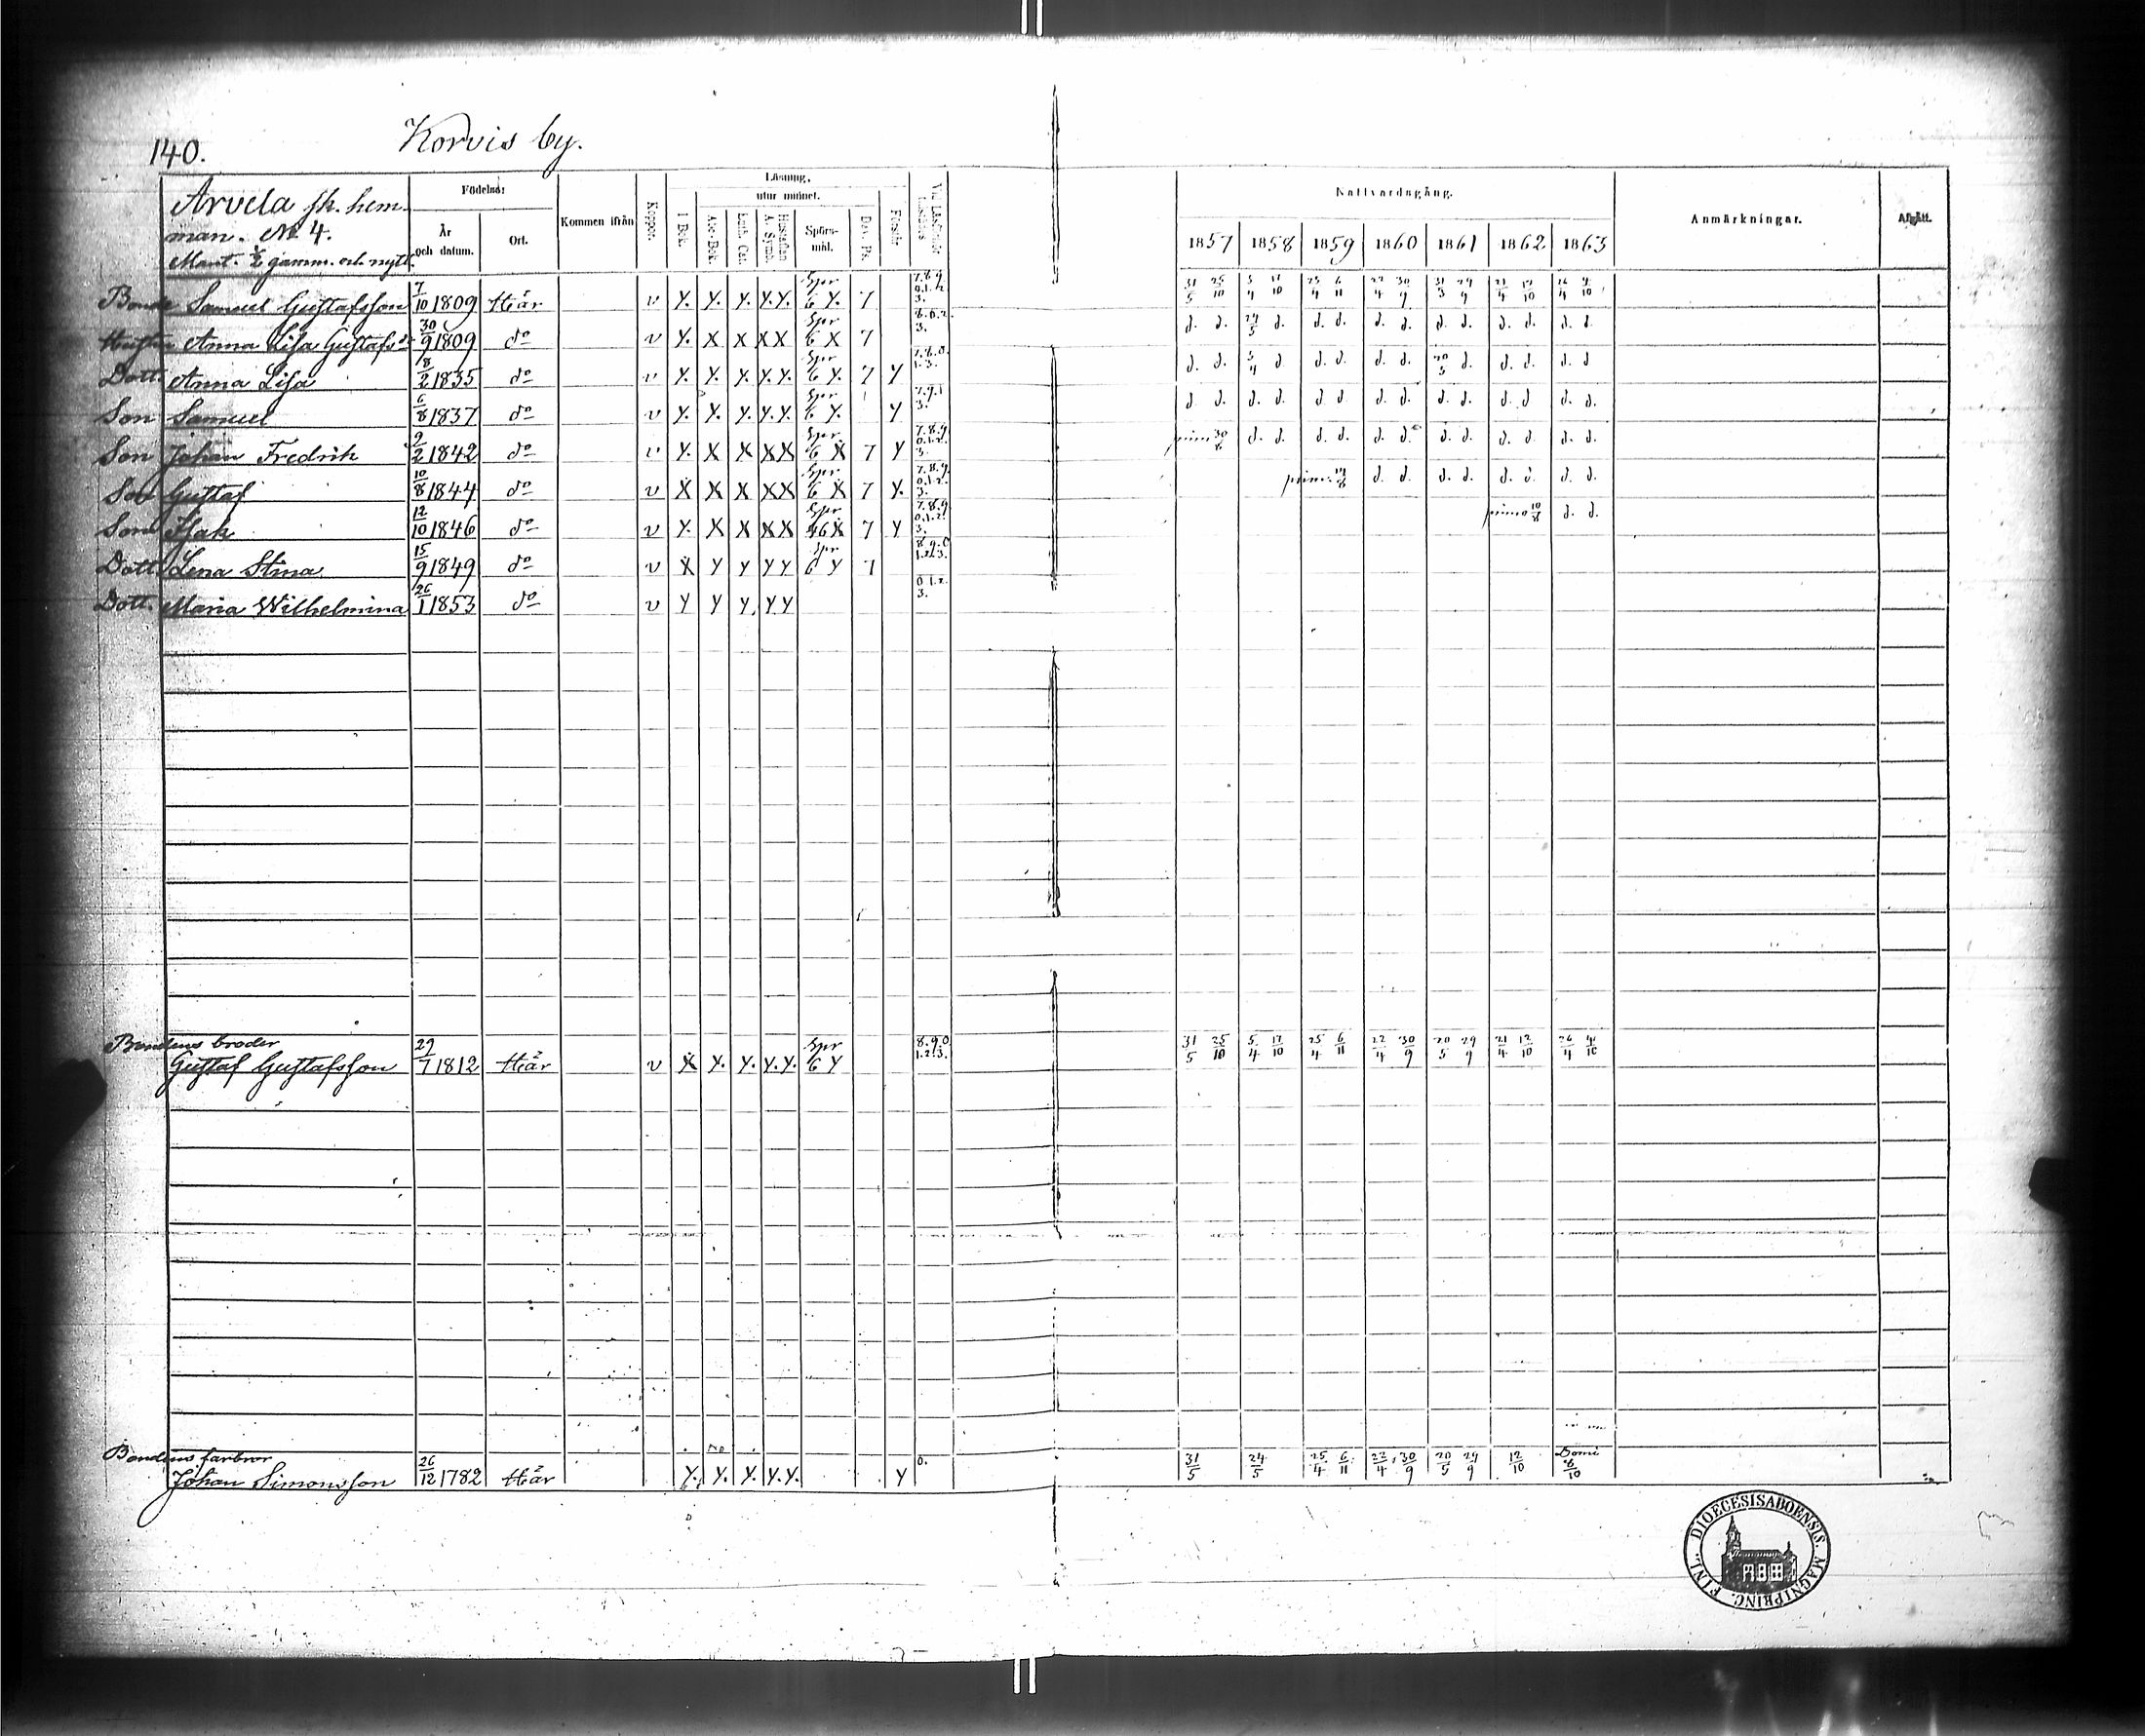 140.
Korvis by.
Arvela sk. hem-
man. No 4.
Mant. 1/2 gamm. och nytt.
Födelse:
År och datum.
Ort.
Kommen ifrån
Koppor.
Läsning,
utur minnet.
I Bok.
Abc-Bok.
Luth. Cat.
Hustaflan A. Symb.
Spörs-mål.
Dav. Ps.
Förstår
Nattvardsgång.
1857 1858 1859 1860 1861 1862 1863
Anmärkningar.
Afgått.
Bonde Samuel Gustafsson 7/10 1809 Här v Y. Y. Y. Y.Y. Spr 6 Y. 7 7.8.9. 0.1.2. 3. 31/5 25/10 5/4 17/10 25/4 6/11 22/4 30/9 31/3 29/9 21/4 12/10 26/4 4/10
Hustru Anna Lisa Gustafsdr 30/9 1809 do v Y. X X XX Spr 6 X 7 8.0.2. 3. d. d. 24/5 d. d. d. d. d. d. d. d. d. d. d.
Dott. Anna Lisa 18/2 1835 do v Y. Y. Y. Y.Y. Spr 6 Y. 7 Y 7.8.0. 1.3. d. d. 5/4 d. d. d. d. d. 20/5 d. d. d. d. d
Son Samuel 6/8 1837 do v Y. Y. Y. Y.Y. Spr 6 Y. Y 7.9.1 3. d. d. d. d. d. d. d. d. d. d. d. d d. d.
Son Johan Fredrik 9/2 1842 do v Y. X X XX Spr 6 X 7 Y 7.8.9 0.1.2. 3. prim 30/8 d. d. d. d. d. d. d. d. d. d. d. d.
Son Gustaf 10/8 1844 do v X X X XX Spr 6 X 7 Y. 7.8.9. 0.1.2. 3. prim. d. d. d. d. d. d. d. d.
Son Isak 12/10 1846 do v Y. X X XX Spr 46X 7 Y 7.8.9. 0.1.2. 3. primo 10/8 d. d.
Dott. Lena Stina 15/9 1849 do v X Y Y YY Spr 6 Y 7 8.9.0 1.2.3.
Dott. Maria Wilhelmina 26/1 1853 do v Y Y Y. YY 0.1.2. 3.
Bondens broder
Gustaf Gustafsson 29/7 1812 Här v X Y. Y. Y.Y. Spr 6 Y 8.9.0 1.2.3. 31/5 25/10 5/4 17/10 25/4 6/11 22/4 30/9 20/5 29/9 21/4 12/10 26/4 4/10
Bondens farbror
Johan Simonsson 26/12 1782 Här Y. Y. Y. Y.Y. Y 0. 31/5 24/5 25/4 6/11 22/4 30/9 20/5 29/9 12/10 Domi 6/10
DIOECESIS ABOENSIS. MAGNI PRINC. FINL.